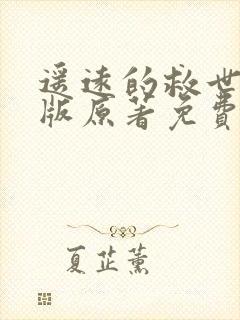 遥远的救世
版原著免费
夏芷薰